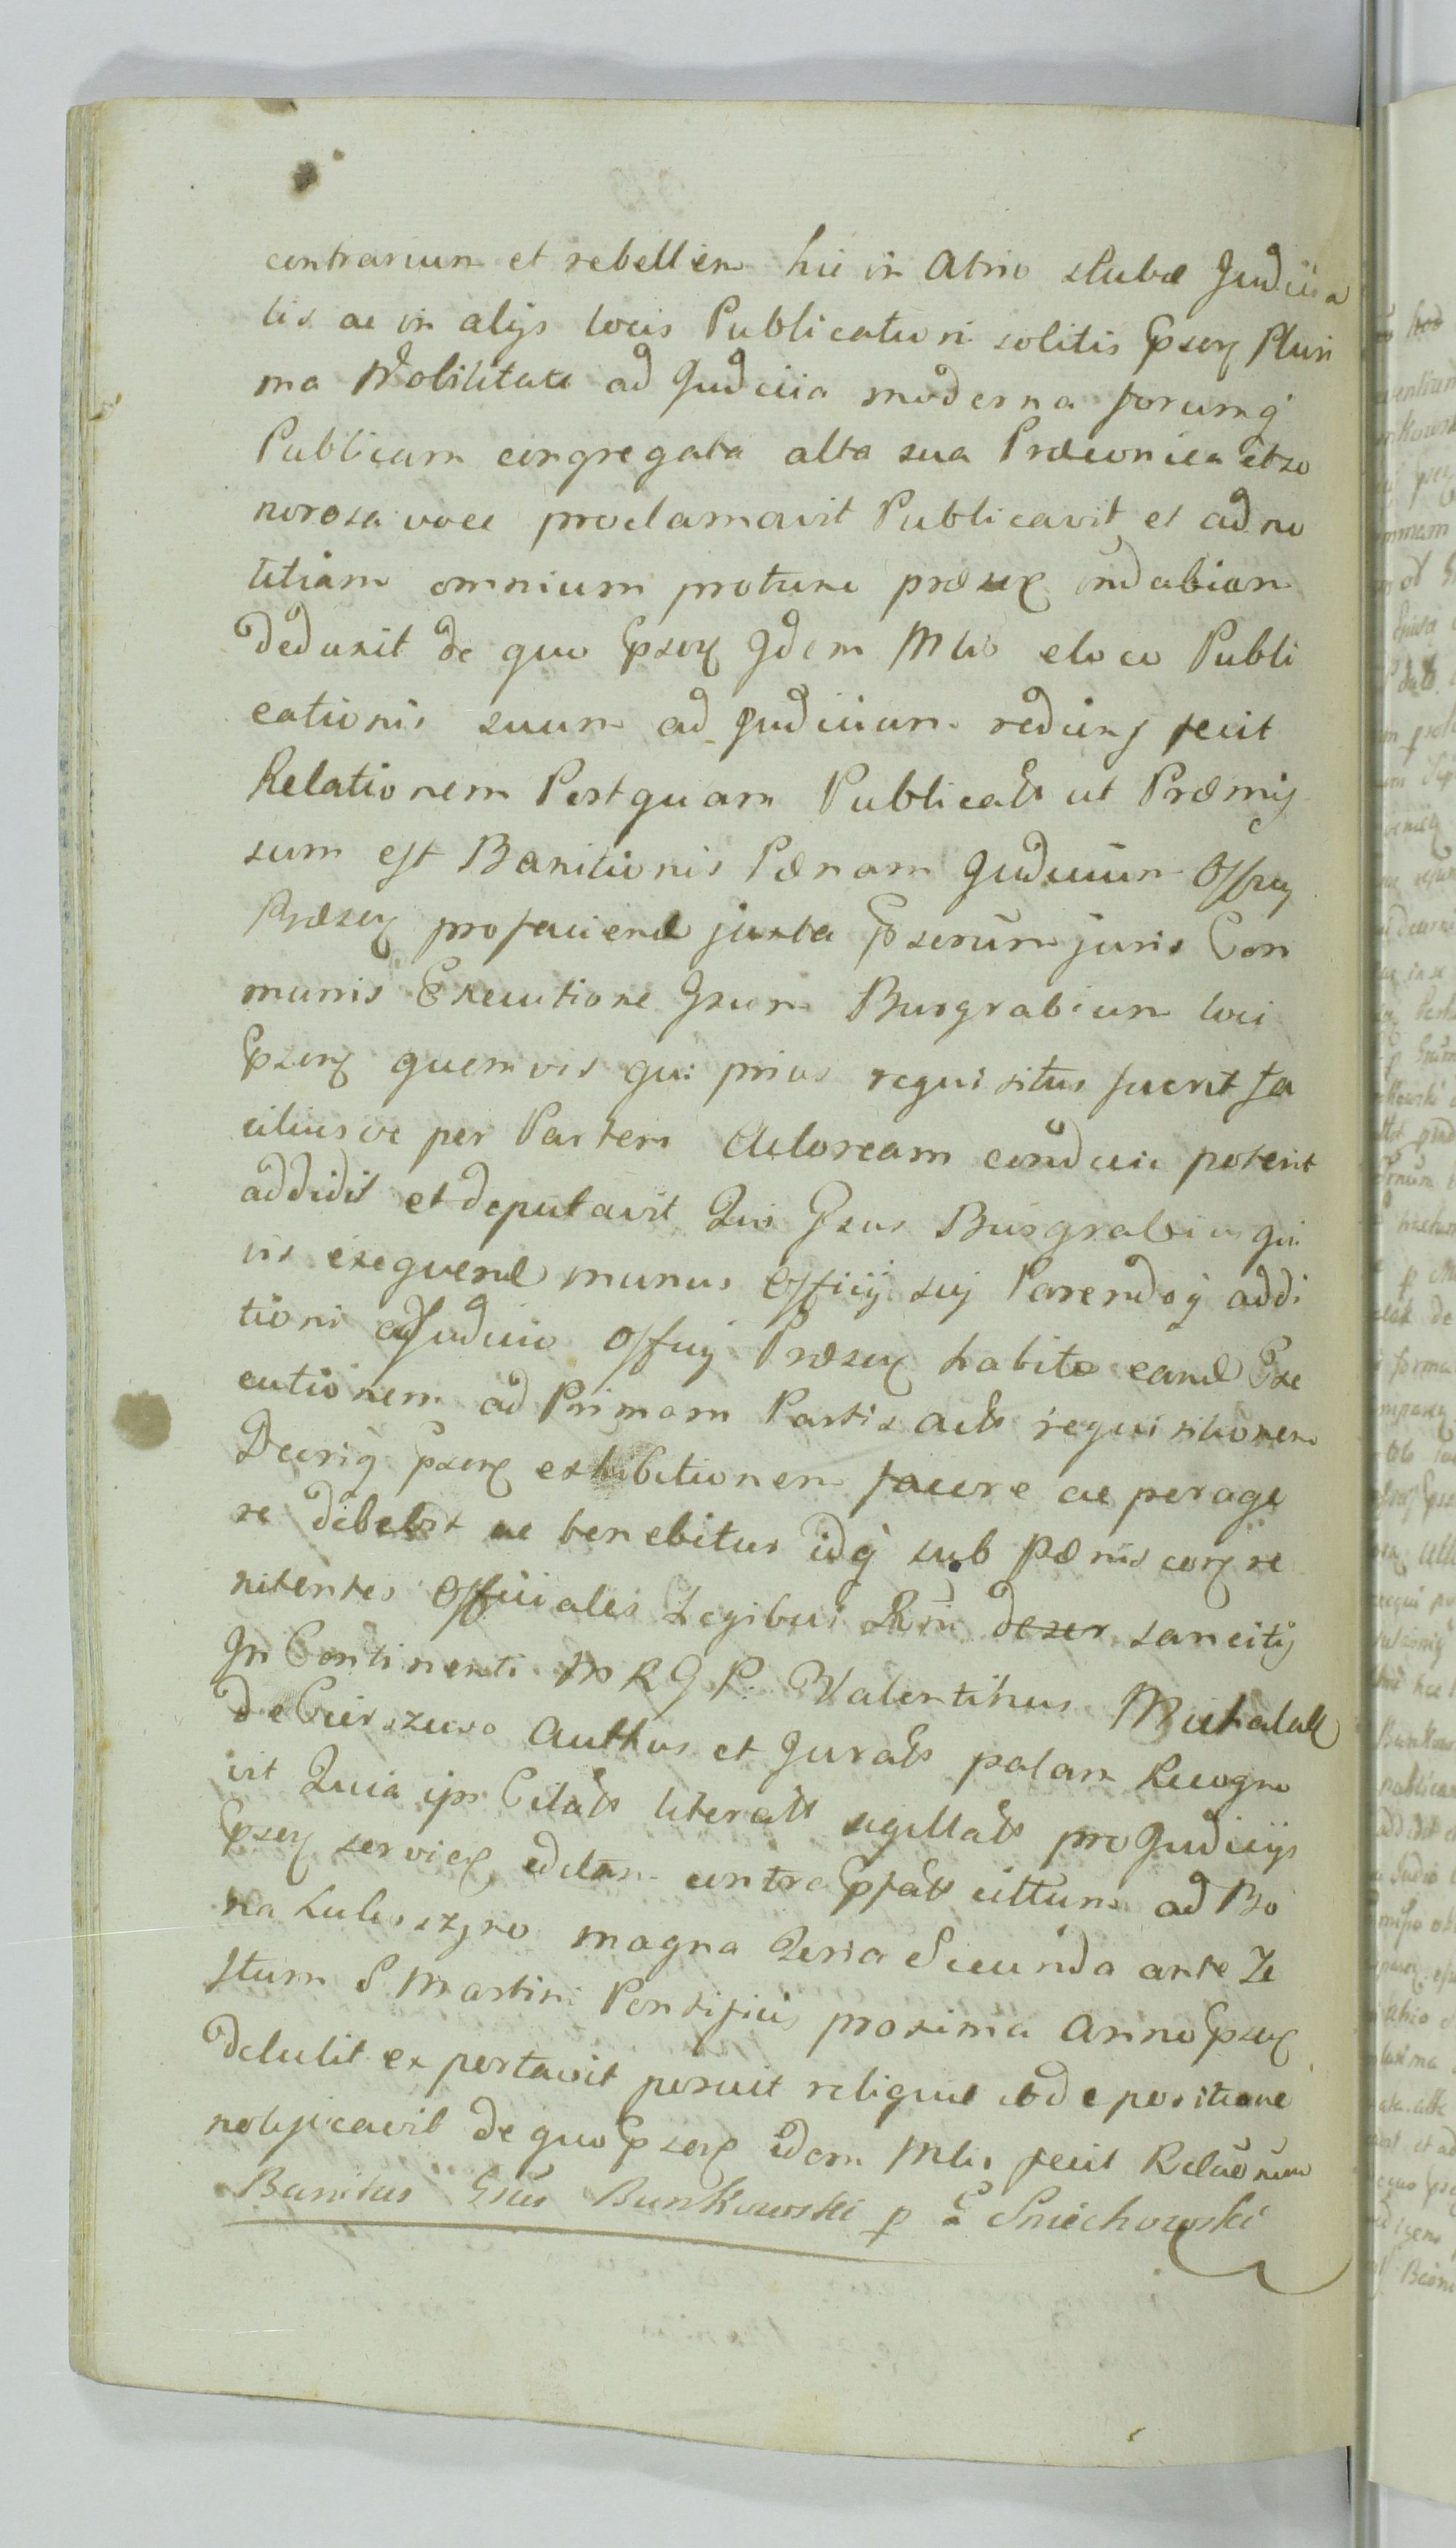 contrarium et rebellem hic in Atrio stubæ Judicia
lis ac in alijs locis Publicationi solitis Ipser Pluri
ma Nobilitate ad Judicia moderna forumq
Publicum congregata alta sua Præconica et so
norosa voce proclamavit Publicavit et ad no
titiam omnium protunc præsen indubiam
deduxit de quo Ipser Idem Mlis eloco Publi
cationis suum ad Judicium rediens fecit
Relationem Postquam Publicatt ut Præmis
sum est Banitionis Pænam Judicium Offcij
Præsens pro faciend juxta Pserum juris Com
munis Executione Gsum Burgrabium loci
Ipser quemvis qui prius requisitus fuerit fa
ciliusve per Partem Actoream conduci poterit
addidit et deputavit Qui Gsus Burgrabius qui
vis exequend munus Officij suj Parendoq addi
tioni a Judicio Officij Præsen habitæ eand Exe
cutionem ad Primam Partis Actt requisitionem
Decriq Ipser exhibitionem facere ac perage
re debebit ac tenebitur idq sub Pænis cont re
nitentes Officiales Legibus Rni deser sancitis
In Continenti MRGP. Valentinus Michalak
de Cierszewo Authus et Juratt palam Recogno
vit Quia ips Citatt literatt sigillatt pro Judicijs
Ipser servien editam contra Ipsatt cittum ad Bo
na Lulis magna Feria Secunda ante Fe
stum S Martini Pontificis proxima Anno Ipser
detulit exportavit posuit reliquit et de positione
notificavit de quo Ipser idem Mlis fecit Relaonem
Banitus Gsus Bunkowski p G Sniechowski